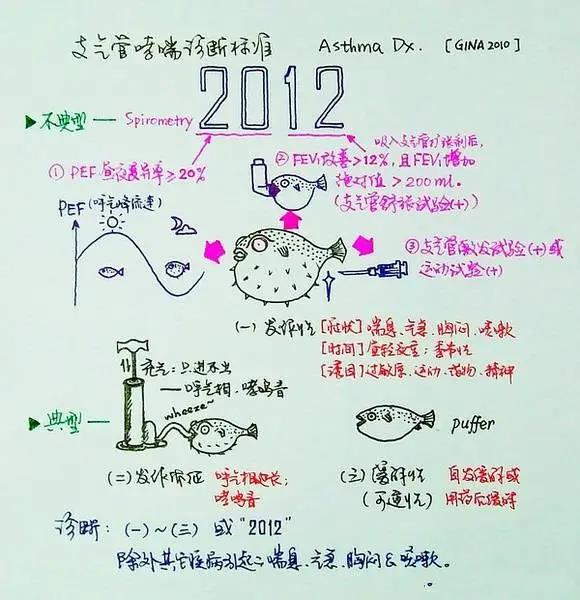 支气管哮喘诊断标准 Asthma Dx. [GINA 2010]
2012
▶不典型 — Spirometry
吸入支气管扩张剂后,
① PEF 昼夜变异率≥20%
② FEV₁改善>12%,且FEV₁增加
绝对值>200ml.
(支气管舒张试验(+))
PEF(呼气峰流速)
③支气管激发试验(+)或
运动试验(+)
(一)发作性 [症状]喘息、气急、胸闷、咳嗽
[时间]昼轻夜重;季节性
[诱因]过敏原、运动、药物、精神
充气:只进不出
——呼气相.哮鸣音
wheeze~
▶典型 —
puffer
(二)发作体征 呼气相延长;
哮鸣音
(三)缓解性 自发缓解或
(可逆性) 用药后缓解
诊断:(一)~(三) 或"2012"
除外其它疾病引起之喘息、气急、胸闷&咳嗽。